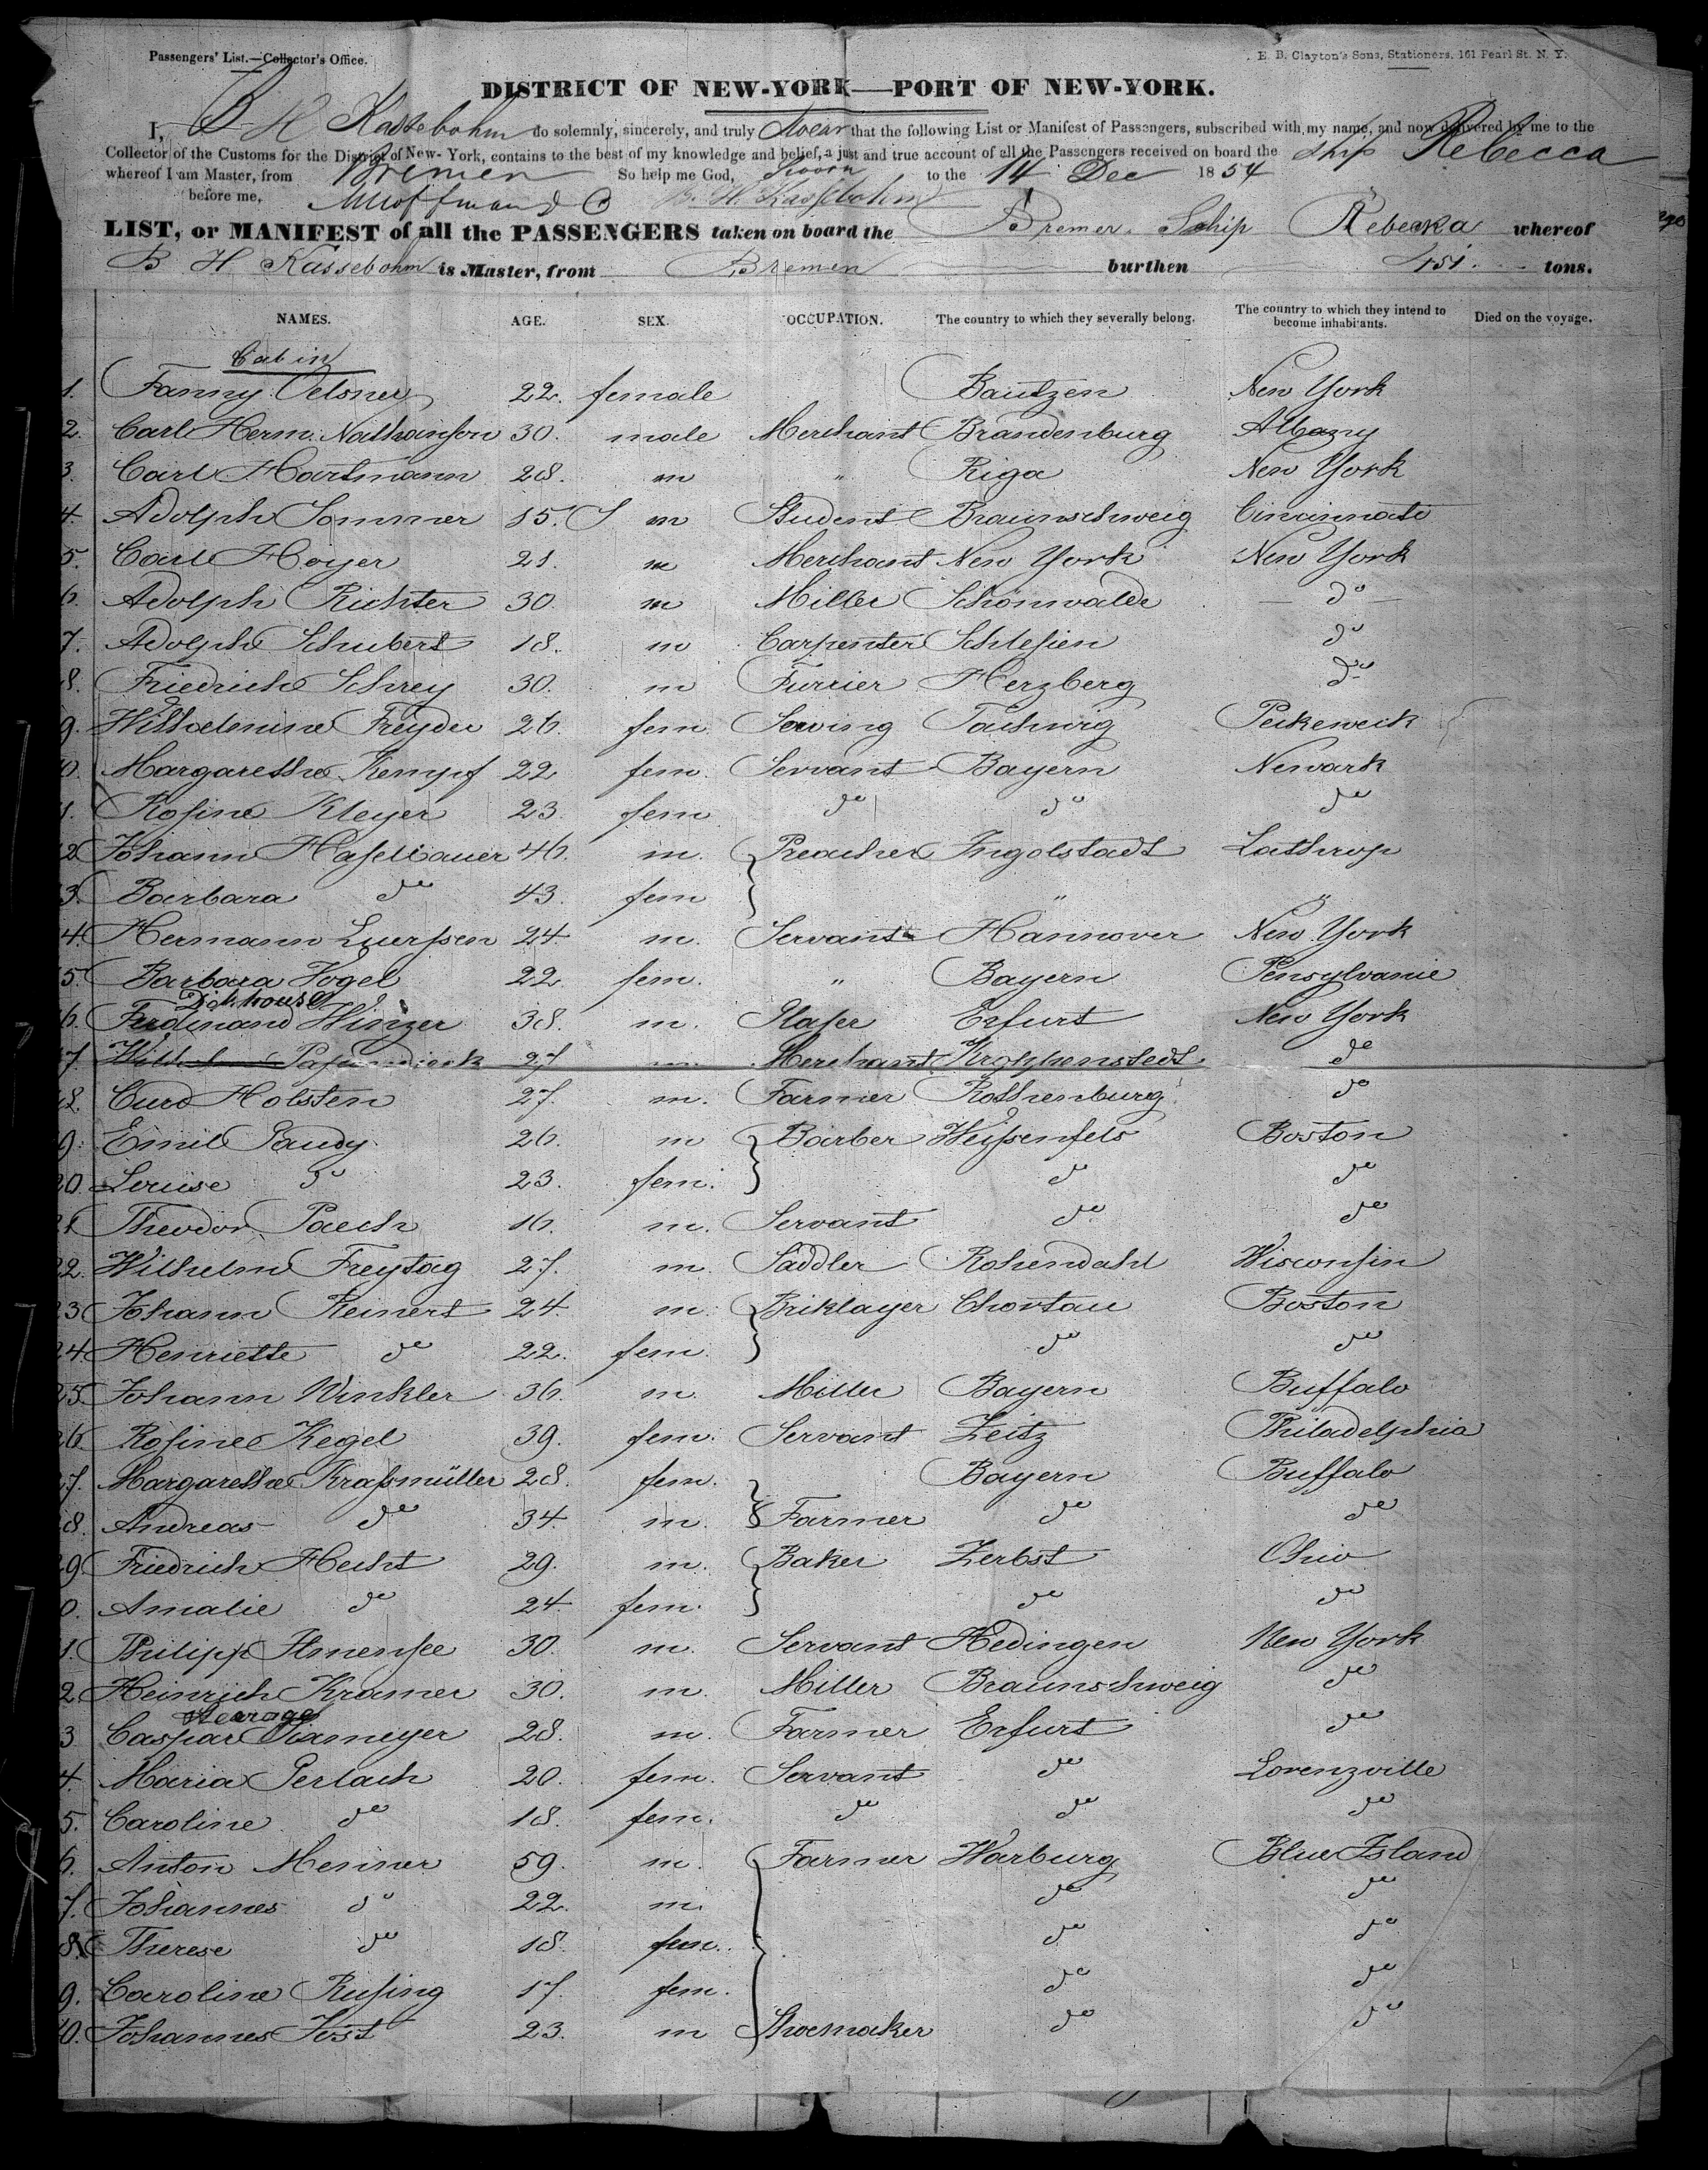 Passengers' List.—Collector's Office.
E. B. Clayton's Sons, Stationers, 161 Pearl St. N. Y.
DISTRICT OF NEW-YORK—PORT OF NEW-YORK.
I, B H Kassebohm do solemnly, sincerely, and truly Swear that the following List or Manifest of Passengers, subscribed with my name, and now delivered by me to the
Collector of the Customs for the District of New-York, contains to the best of my knowledge and belief, a just and true account of all the Passengers received on board the Ship Rebecca
whereof I am Master, from Bremen So help me God, Sworn to the 14 Dec 1854
before me, B. H. Kassebohm
LIST, or MANIFEST of all the PASSENGERS taken on board the Bremer Schip Rebecka whereof
B H Kassebohm is Master, from Bremen burthen 451 tons.
NAMES. AGE. SEX. OCCUPATION. The country to which they severally belong. The country to which they intend to become inhabitants. Died on the voyage.
Cabin
1. Fanny Oelsner 22. female Bautzen New York
2. Carl Herm. Nathanson 30. male Merchant Brandenburg Albany
3. Carl Hartmann 28. m " Riga New York
4. Adolph Sommer 15. m Student Braunschweig Cincinnati
5. Carl Hoyer 21. m Merchant New York New York
6. Adolph Richter 30 m Miller Schönwalde do
7. Adolph Schubert 18. m Carpenter Schlesien do
8. Friedrich Schrey 30. m Furrier Herzberg do
9. Wilhelmine Freyder 26. fem. Sewing Peikeweick
0. Margarethe Kempf 22 fem. Servant Bayern Newark
1. Rosine Kleyer 23. fem do do do
2. Johann Haselbauer 46. m. Preacher Ingolstadt Lathrop
3. Barbara do 43. fem " "
4. Hermann Luerssen 24. m. Servant Hannover New York
5. Barbara Vogel 22. fem. " Bayern Pensylvanie
Dekhouse
6. Ferdinand Winzer 38. m. Glaser Erfurt New York
7. 27 m. Merchant Kroppenstedt do
18. Curd Holsten 27. m. Farmer Rothenburg do
9. Emil Paudy 26. m Barber Weissenfels Boston
20. Louise do 23. fem. do do
21 Theodor Paech 16. m. Servant do do
22. Wilhelm Freytag 27. m. Saddler Rohendahl Wisconsin
23 Johann Reinert 24. m. Briklayer Chortau Boston
24. Henriette do 22. fem. do do
25. Johann Winkler 36. m Miller Bayern Buffalo
26 Rosine Kegel 39. fem. Servant Zeitz Philadelphia
27. Margarethe Krassmüller 28. fem. Bayern Buffalo
8. Andreas do 34. m. Farmer do do
9. Friedrich Hecht 29. m. Baker Zerbst Ohio
0. Amalie do 24. fem. do do
1. Philipp Ilmensee 30. m. Servant Hedingen New York
2. Heinrich Kramer 30. m. Miller Braunschweig do
Stearage
3 Caspar 28. m. Farmer Erfurt do
4. Maria Gerlach 20. fem. Servant do Lorenzville
5. Caroline do 18. fem. do do do
6. Anton Menner 59. m. Farmer Warburg Blue Island
7. Johannes do 22. m. do do
8. Therese do 18. fem. do do
9. Caroline Rusing 17. fem. do do
0. Johannes Jost 23. m Shoemaker do do